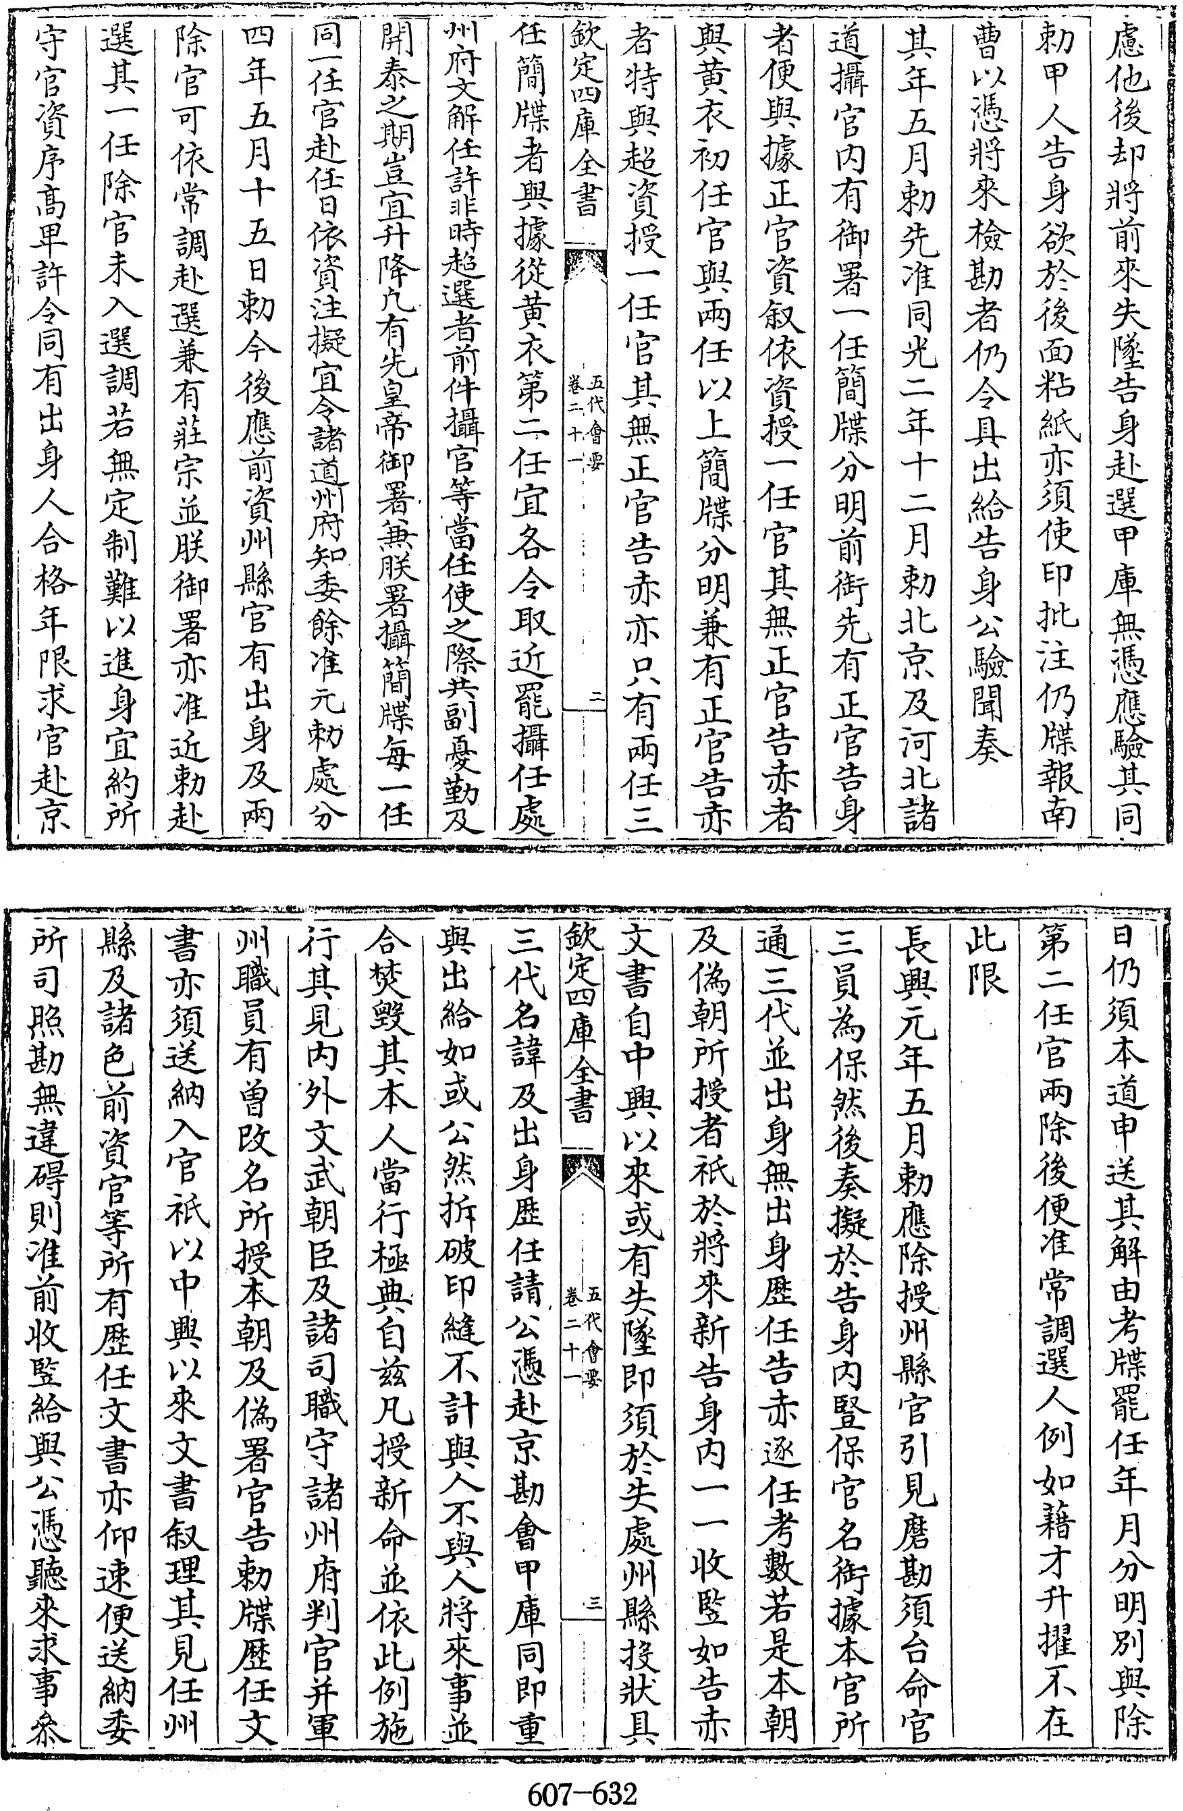 慮他後却將前來失墜告身赴選甲庫無憑應驗其同
勅甲人告身欲於後面粘紙亦須使印批注仍牒報南
曹以憑將來檢勘者仍令具出給告身公驗聞奏
其年五月勅先准同光二年十二月勅北京及河北諸
道攝官内有御署一任簡牒分明前銜先有正官告身
者便與據正官資叙依資授一任官其無正官告赤者
與黄衣初任官與兩任以上簡牒分明兼有正官告赤
者特與超資授一任官其無正官告赤亦只有兩任三
欽定四庫全書
五代會要
卷二十一
二
任簡牒者與據從黄衣第二任宜各令取近罷攝任處
州府文解任許非時超選者前件攝官等當任使之際共副憂勤及
開泰之期豈宜升降凢有先皇帝御署兼朕署攝簡牒每一任
同一任官赴任日依資注擬宜令諸道州府知委餘准元勅處分
四年五月十五日勅今後應前資州縣官有出身及兩
除官可依常調赴選兼有莊宗並朕御署亦准近勅赴
選其一任除官未入選調若無定制難以進身宜約所
守官資序髙卑許令同有出身人合格年限求官赴京
日仍須本道申送其解由考牒罷任年月分明别與除
第二任官兩除後便准常調選人例如藉才升擢不在
此限
長興元年五月勅應除授州縣官引見磨勘須台命官
三員為保然後奏擬於告身内豎保官名銜據本官所
通三代並出身無出身歴任告赤逐任考數若是本朝
及偽朝所授者祇於將來新告身内一一收豎如告赤
文書自中興以來或有失墜即須於失處州縣投狀具
欽定四庫全書
五代會要
卷二十一
三
三代名諱及出身歴任請公憑赴京勘會甲庫同即重
與出給如或公然拆破印縫不計與人不與人將來事並
合焚毀其本人當行極典自兹凡授新命並依此例施
行其見内外文武朝臣及諸司職守諸州府判官并軍
州職員有曽改名所授本朝及偽署官告勅牒歴任文
書亦須送納入官祇以中興以來文書叙理其見任州
縣及諸色前資官等所有歴任文書亦仰速便送納委
所司照勘無違碍則准前收豎給與公憑聽來求事叅
607-632